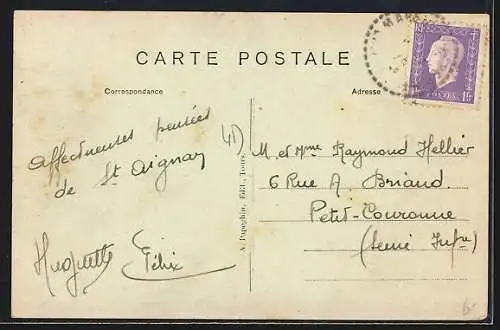 CARTE POSTALE
Correspondance
Adresse
Affectueuses pensées
de St Aignan
(41)
Huguette Félix
A. Papeghin, Édit., Tours.
M. et Mme Raymond Hellier
6 Rue A. Briand.
Petit-Couronne
(Seine Infre)